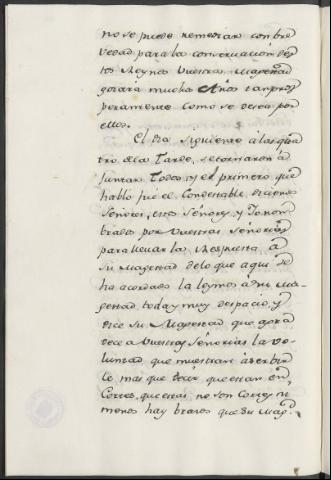 no se puede remediar con bre
vedad para la conservación des
tos Reynos Vuestra Magestad
gozará muchos Años tan pros
peramente como se desea por
ellos.
El dia siguiente á las qua
tro dela Tarde, se tornaron á
Juntar Todos, y el primero que
habló fué el Condestable, diciendo
Señores, estos Señores, y Yo nom
brados por Vuestras Señorias
para llevar la Respuesta á
Su Magestad de lo que aqui se
ha acordado la leymos á Su Ma
gestad toda y muy despacio, y
dice Su Magestad que agra
dece a Vuestras Señorias la vo
luntad que muestran á servir
le mas que decir, que estan en
Cortes, que estas no son Cortes ni
menos hay brazos que Su Magd.